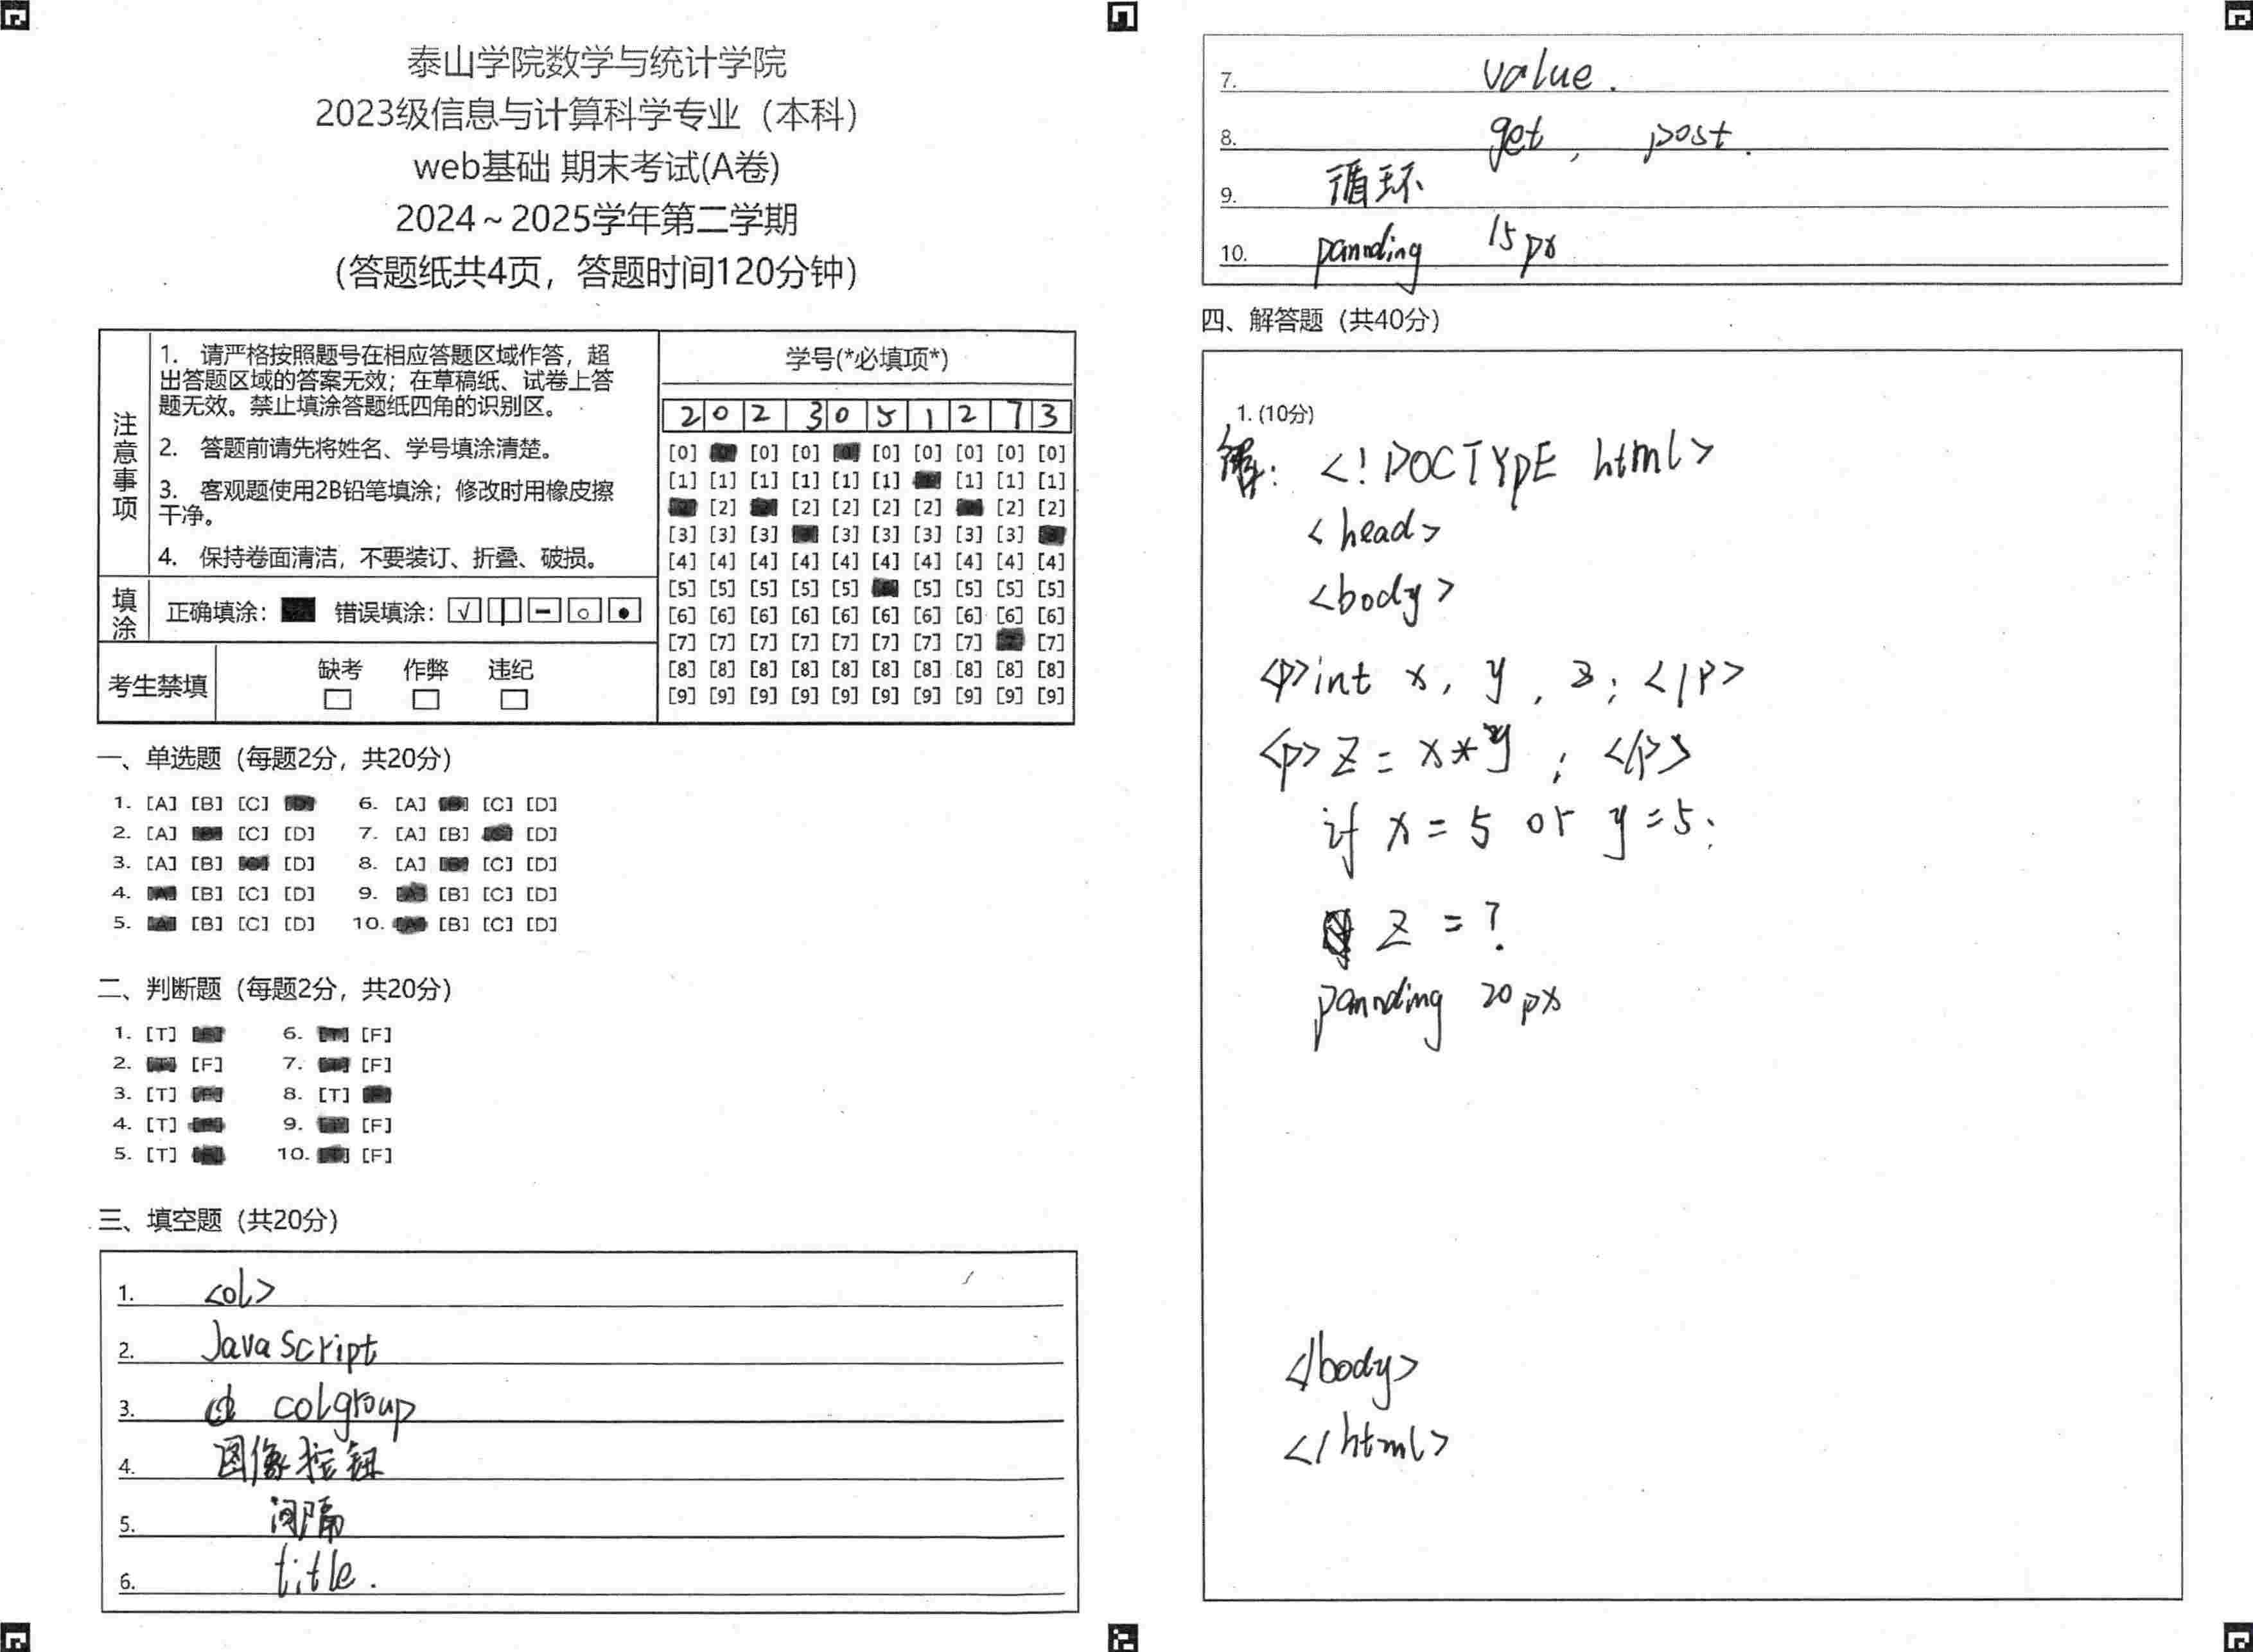 泰山学院数学与统计学院
2023级信息与计算科学专业（本科）
web基础 期末考试(A卷)
2024～2025学年第二学期
(答题纸共4页，答题时间120分钟)
注意事项
1. 请严格按照题号在相应答题区域作答，超
出答题区域的答案无效；在草稿纸、试卷上答
题无效。禁止填涂答题纸四角的识别区。
2. 答题前请先将姓名、学号填涂清楚。
3. 客观题使用2B铅笔填涂；修改时用橡皮擦
干净。
4. 保持卷面清洁，不要装订、折叠、破损。
填涂 正确填涂： 错误填涂：
考生禁填 缺考 作弊 违纪
学号(*必填项*)
2 0 2 3 0 5 1 2 7 3
[0] [0] [0] [0] [0] [0] [0] [0]
[1] [1] [1] [1] [1] [1] [1] [1] [1]
[2] [2] [2] [2] [2] [2] [2]
[3] [3] [3] [3] [3] [3] [3] [3]
[4] [4] [4] [4] [4] [4] [4] [4] [4] [4]
[5] [5] [5] [5] [5] [5] [5] [5] [5]
[6] [6] [6] [6] [6] [6] [6] [6] [6] [6]
[7] [7] [7] [7] [7] [7] [7] [7] [7]
[8] [8] [8] [8] [8] [8] [8] [8] [8] [8]
[9] [9] [9] [9] [9] [9] [9] [9] [9] [9]
一、单选题（每题2分，共20分）
1. [A] [B] [C] 6. [A] [C] [D]
2. [A] [C] [D] 7. [A] [B] [D]
3. [A] [B] [D] 8. [A] [C] [D]
4. [B] [C] [D] 9. [B] [C] [D]
5. [B] [C] [D] 10. [B] [C] [D]
二、判断题（每题2分，共20分）
1. [T] 6. [F]
2. [F] 7. [F]
3. [T] 8. [T]
4. [T] 9. [F]
5. [T] 10. [F]
三、填空题（共20分）
1. <ol>
2. JavaScript
3. colgroup
4. 图像按钮
5. 间隔
6. title.
7. value.
8. get, post.
9. 循环
10. pannding 15px
四、解答题（共40分）
1. (10分)
解: <!DOCTYPE html>
<head>
<body>
<p>int x, y, z; </p>
<p>z = x*y ; </p>
if x = 5 or y = 5:
z = ?
pannding 20px
</body>
</html>